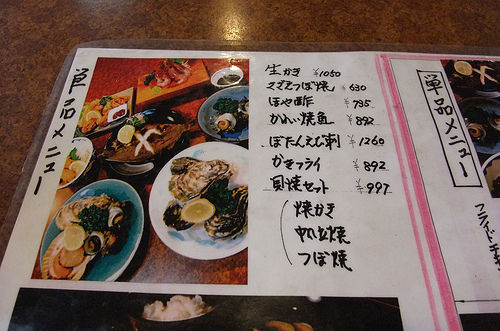 単品メニュー
生かき ¥1050
さざえつぼ焼 ¥630
ほや酢 ¥735
かれい焼魚 ¥892
ぼたんえび刺 ¥1260
かきフライ ¥892
貝焼セット ¥997
焼かき
帆立焼
つぼ焼
単品メニュー
フライドチキ